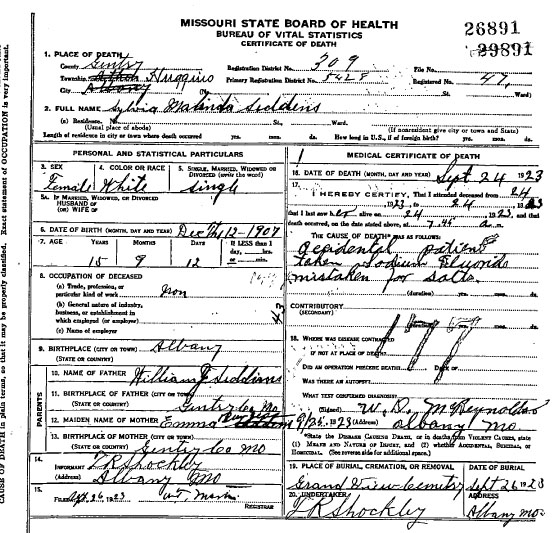 MISSOURI STATE BOARD OF HEALTH
BUREAU OF VITAL STATISTICS
CERTIFICATE OF DEATH
26891
29891
1. PLACE OF DEATH
County Gentry
Registration District No. 309
File No.
Township Huggins
Primary Registration District No. 5428
Registered No. 47
City Albany
No. St. Ward)
2. FULL NAME Sylvia Malinda Siddens
(a) Residence. No. St., Ward.
(Usual place of abode) (If nonresident give city or town and State)
Length of residence in city or town where death occurred yrs. mos. ds. How long in U.S., if of foreign birth? yrs. mos. ds.
PERSONAL AND STATISTICAL PARTICULARS
3. SEX Female
4. COLOR OR RACE White
5. SINGLE, MARRIED, WIDOWED OR DIVORCED (write the word) Single
5A. IF MARRIED, WIDOWED, OR DIVORCED
HUSBAND OF
(OR) WIFE OF
6. DATE OF BIRTH (MONTH, DAY AND YEAR) Dec 12-1907
7. AGE YEARS MONTHS DAYS If LESS than 1
day, hrs.
or min.
15 9 12
8. OCCUPATION OF DECEASED
(a) Trade, profession, or
particular kind of work
(b) General nature of industry,
business, or establishment in
which employed (or employer)
(c) Name of employer
9. BIRTHPLACE (CITY OR TOWN) Albany
(STATE OR COUNTRY)
PARENTS
10. NAME OF FATHER William F Siddens
11. BIRTHPLACE OF FATHER (CITY OR TOWN)
(STATE OR COUNTRY) Gentry Co Mo
12. MAIDEN NAME OF MOTHER Emma
13. BIRTHPLACE OF MOTHER (CITY OR TOWN)
(STATE OR COUNTRY) Gentry Co Mo
14. INFORMANT T R Shockley
(Address) Albany Mo
15. FILED Sept 26, 1923
REGISTRAR
MEDICAL CERTIFICATE OF DEATH
16. DATE OF DEATH (MONTH, DAY AND YEAR) Sept 24 1923
17. I HEREBY CERTIFY, That I attended deceased from 24
1923, to 24, 1923
that I last saw her alive on 24, 1923, and that
death occurred, on the date stated above, at 7.45 m.
THE CAUSE OF DEATH* WAS AS FOLLOWS:
accidental, patient
taken sodium fluoride
mistaken for salts.
(duration) yrs. mos. ds.
CONTRIBUTORY
(SECONDARY)
18. WHERE WAS DISEASE CONTRACTED
IF NOT AT PLACE OF DEATH?
DID AN OPERATION PRECEDE DEATH? DATE OF
WAS THERE AN AUTOPSY?
WHAT TEST CONFIRMED DIAGNOSIS?
(Signed) W. D. McReynolds
9/25, 1923 (Address) Albany Mo
*State the DISEASE CAUSING DEATH, or in deaths from VIOLENT CAUSES, state
(1) MEANS AND NATURE OF INJURY, and (2) whether ACCIDENTAL, SUICIDAL, or
HOMICIDAL. (See reverse side for additional space.)
19. PLACE OF BURIAL, CREMATION, OR REMOVAL DATE OF BURIAL
Grand View Cemetry Sept 26 1923
20. UNDERTAKER ADDRESS
T R Shockley Albany Mo
CAUSE OF DEATH in plain terms, so that it may be properly classified. Exact statement of OCCUPATION is very important.